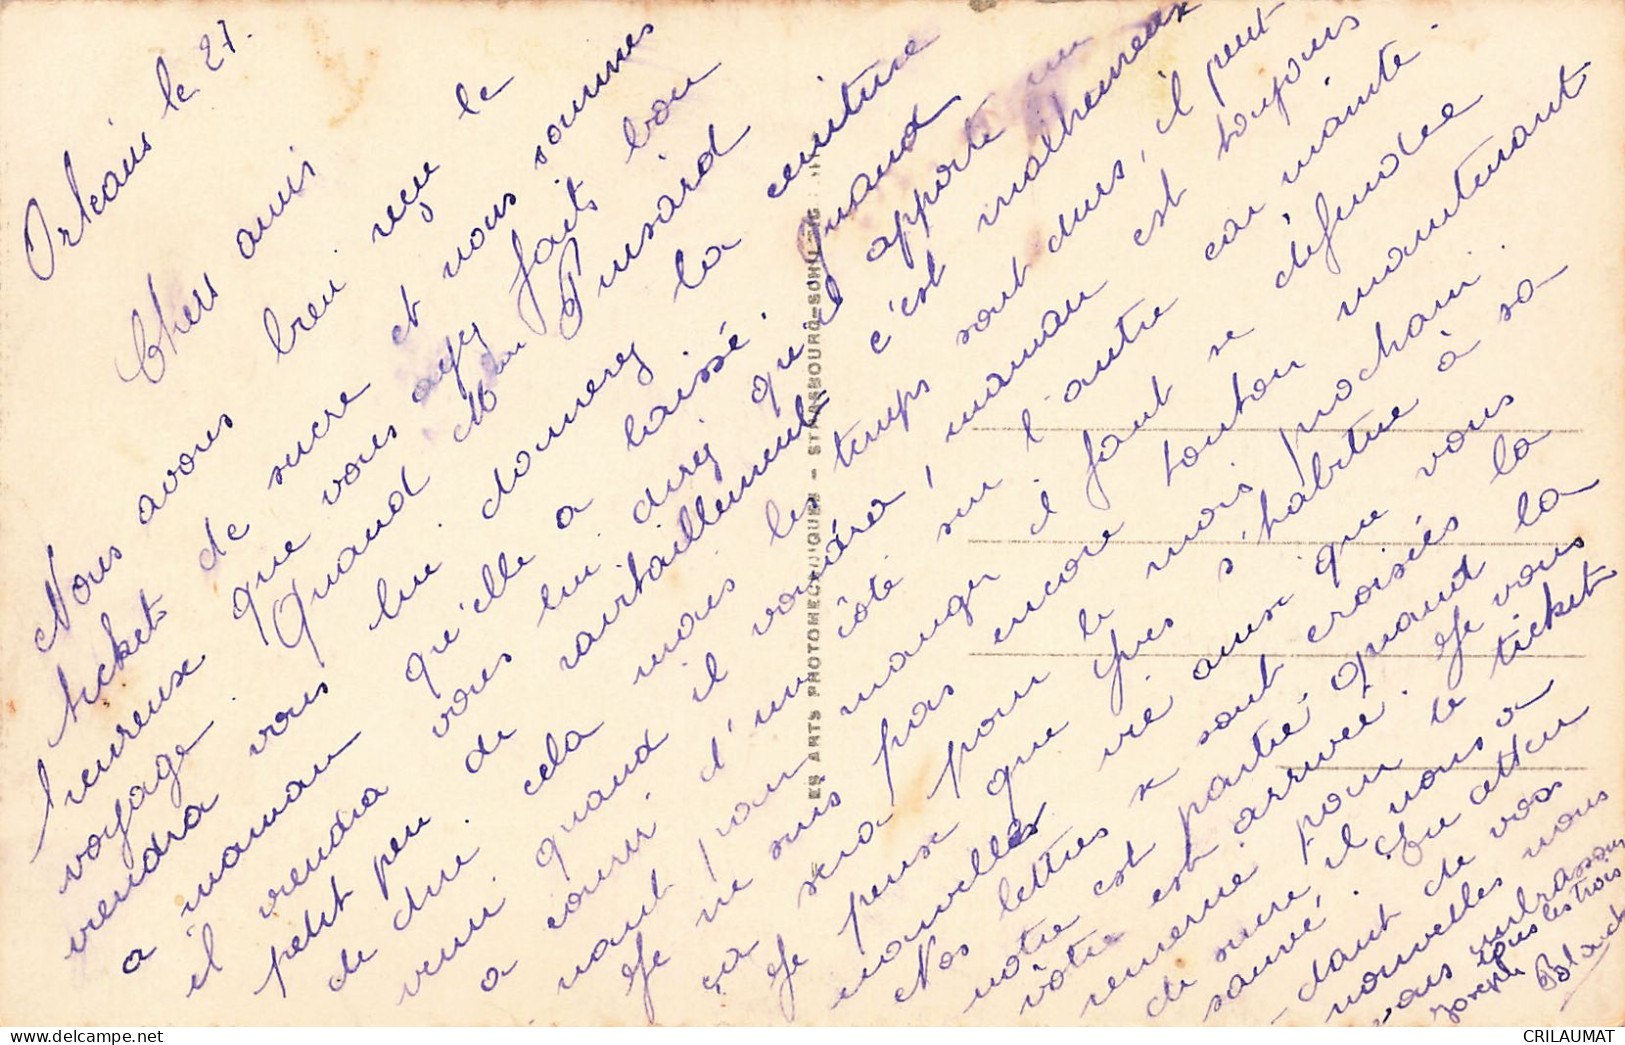 Orléans le 27.
Chers amis
Nous avons bien reçu le
ticket de sucre et nous sommes
heureux que vous ayez faits bon
voyage. Quand Mme Pinsard
viendra vous lui donnerez la ceinture
a maman qu'elle a laissé. Quand
il viendra vous lui direz qu'il apporte un
petit peu de ravitaillement c'est malheureux
de dire cela mais les temps sont durs, il peut
venir quand il voudra, maman est toujours
a courir d'un côté su l'autre car mainte-
nant pour manger il faut se défendre
Je ne suis pas encore tonton maintenant
ça sera pour le mois prochain.
Je pense que Yves s'habitue à sa
nouvelle vie ainsi que vous
Nos lettres se sont croisées la
notre est partie quant la
vôtre est arrivée. Je vous
remercie pour le ticket
de sucre il nous a
sauvé. En atten
-dant de vos
nouvelles nous
vous embrassons
tous les trois
Joseph Blanche
ES ARTS PHOTOMECANIQUES - STRASBOURG-SCHILTIG
CRILAUMAT